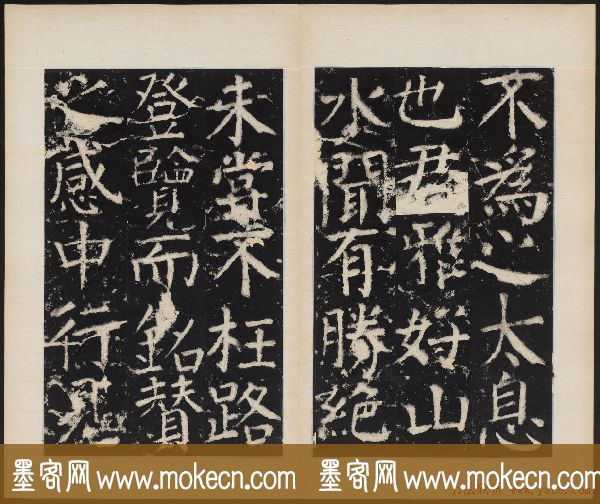 不為之太息
也君雅好山
水聞有勝絕
未嘗不枉路
登臨覽而銘贊
之感申行
墨客网 www.mokecn.com 墨客网 www.mokecn.com